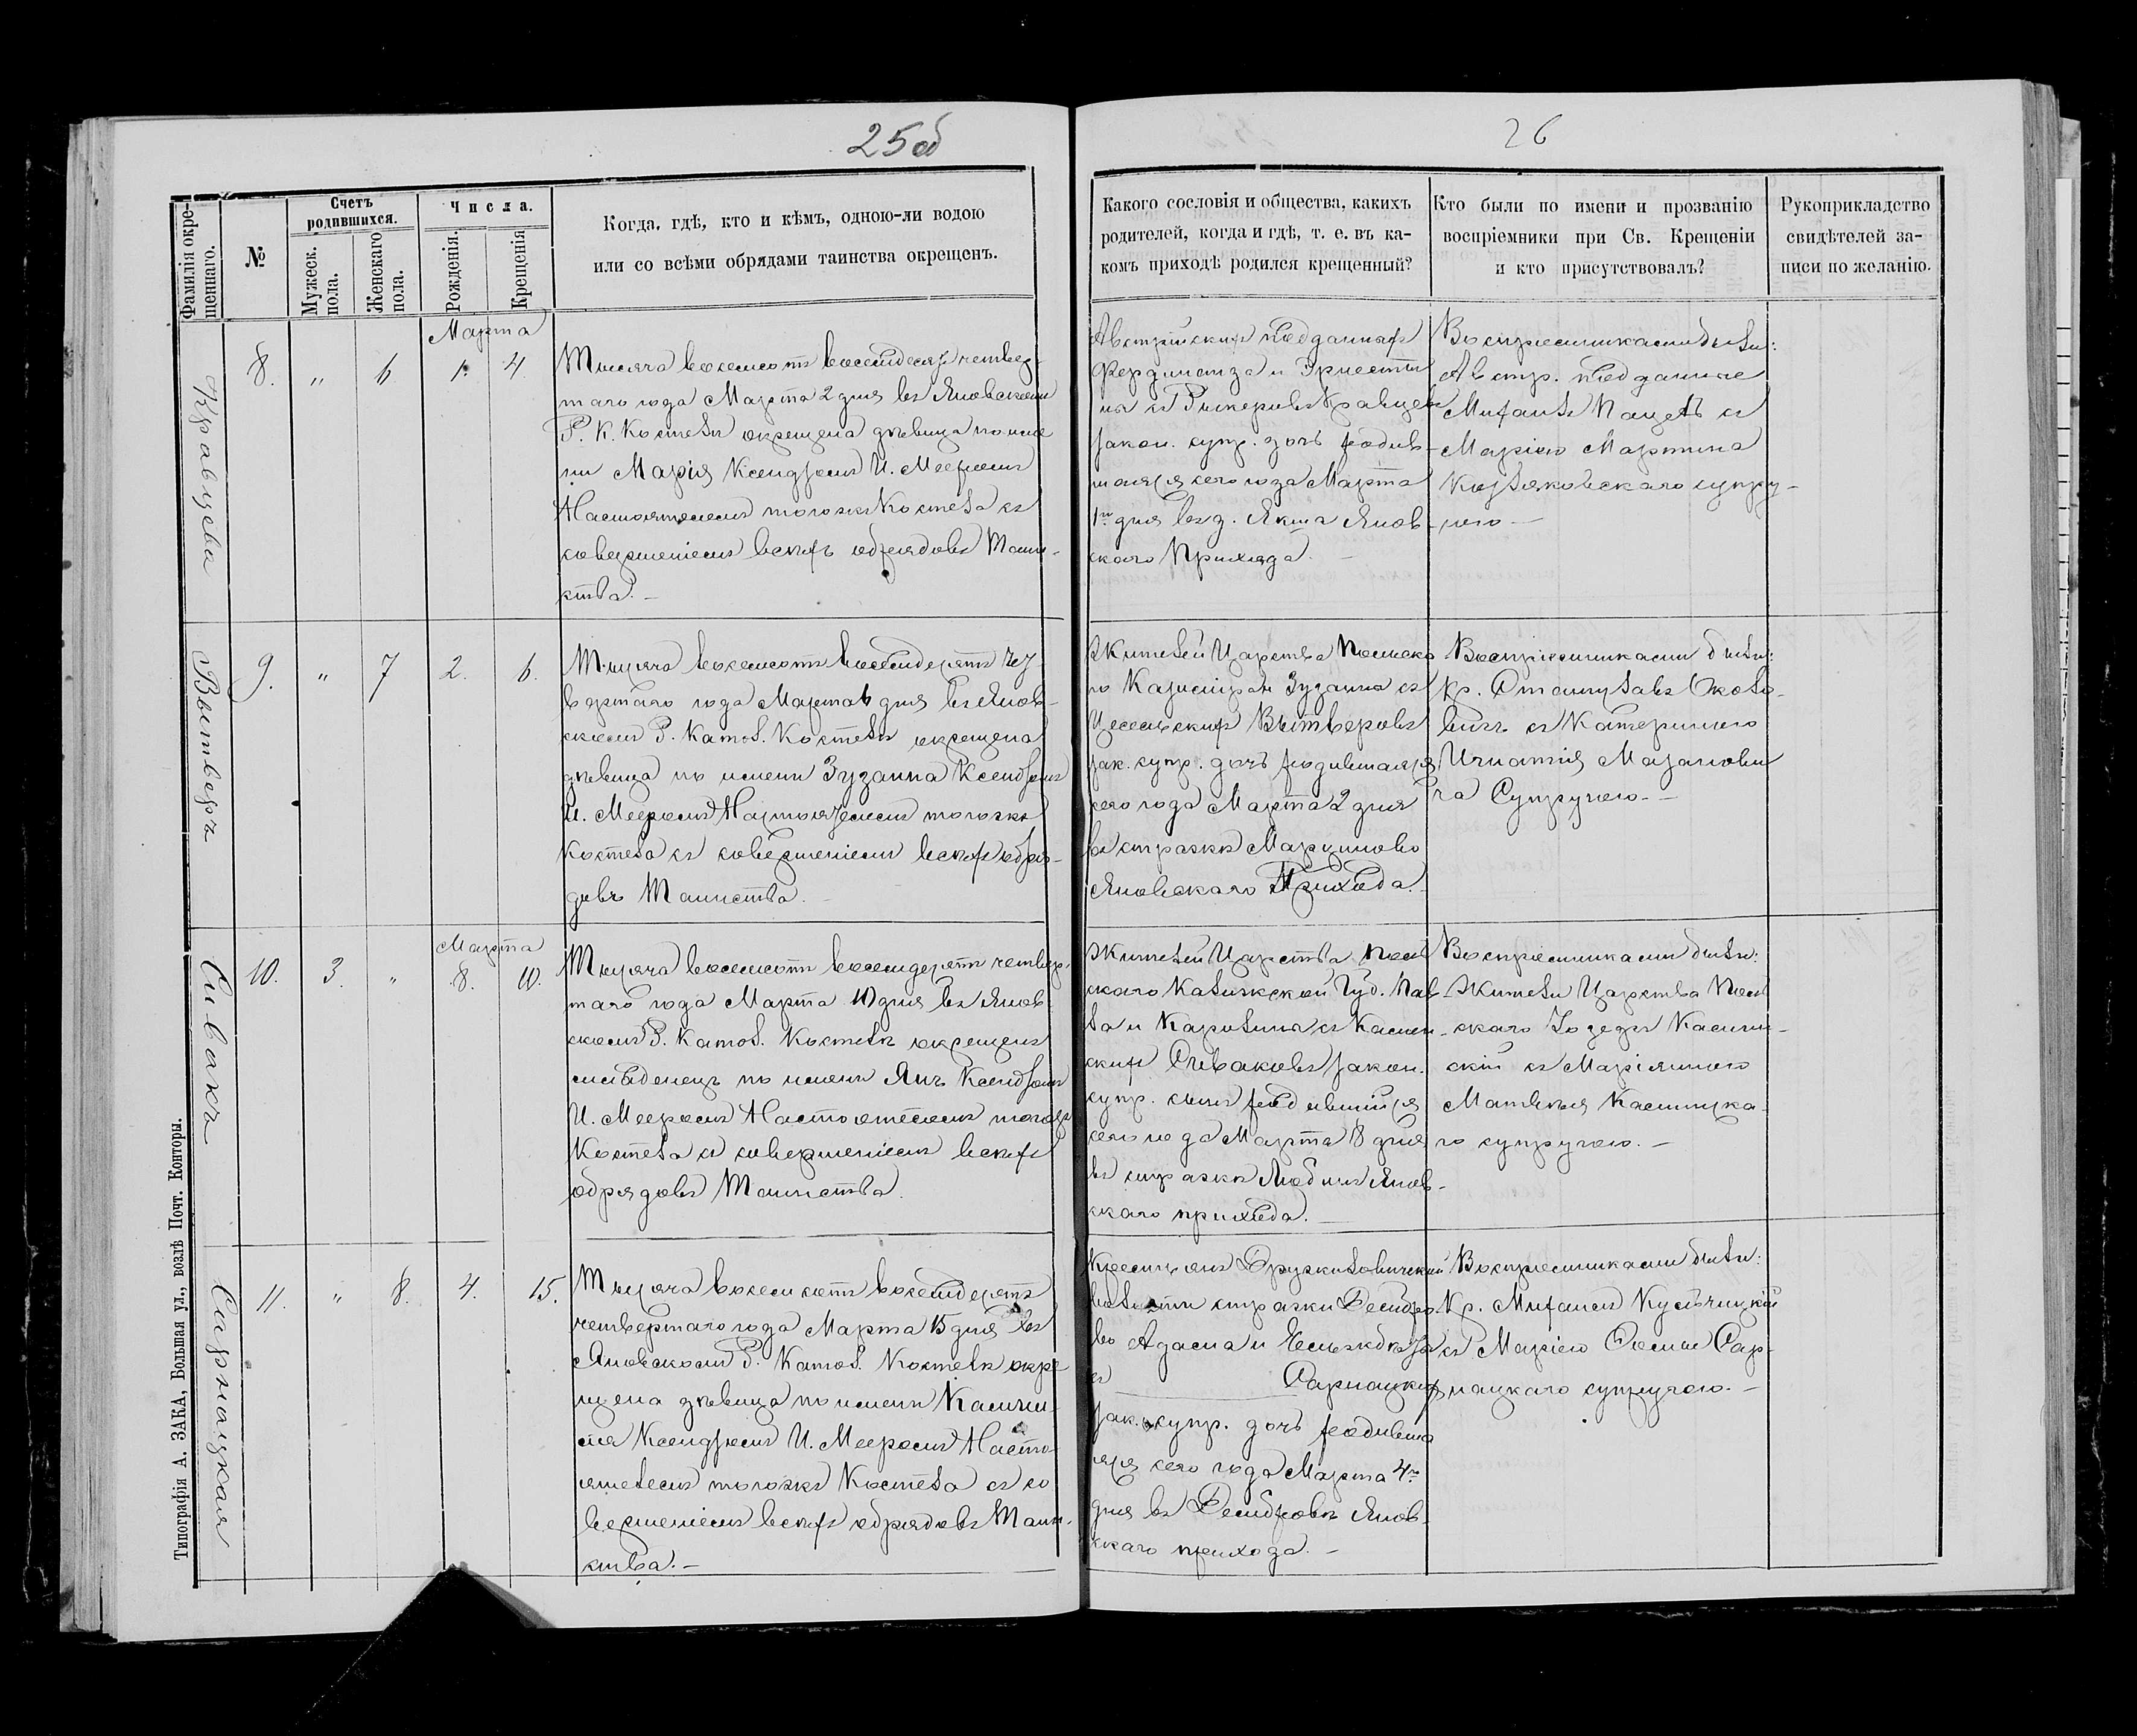 25об
26
Фамилія окре-
щеннаго.
№
Счетъ
родившихся.
Мужеск.
пола.
Женскаго
пола.
Числа.
Рожденія.
Крещенія
Когда, гдѣ, кто и кѣмъ, одною-ли водою
или со всѣми обрядами таинства окрещенъ.
Какого сословія и общества, какихъ
родителей, когда и гдѣ, т. е. въ ка-
комъ приходѣ родился крещенный?
Кто были по имени и прозванію
воспріемники при Св. Крещеніи
и кто присутствовалъ?
Рукоприкладство
свидѣтелей за-
писи по желанію.
Кравцева
Марта
8. „ 6 1. 4.
Тысяча восемсотъ восемдесятъ четвер-
таго года Марта 2 дня въ Яновскомъ
Р. К. Костелѣ окрещена дѣвица по име
ни Марія Ксендзомъ И. Мееромъ
Настоятелемъ тогожъ Костела съ
совершеніемъ всѣхъ обрядовъ Таин-
ства. –
Австрійскихъ подданныхъ
Фердинанда и Эрнести
ны съ Кравцевъ
закон. супр. дочь родив-
шаяся сего года Марта
1го дня въ д. Якша Янов-
скаго Прихода. –
Воспріемниками были:
Австр. подданные
Михаилъ Пацетъ съ
Маріею Мартина
супру-
гою –
Вытверъ
9. „ 7 2. 6.
Тысяча восемсотъ восемдесятъ чет
вертаго года Марта 6 дня въ Янов-
скомъ Р. Катол. Костелѣ окрещена
дѣвица по имени Зузанна Ксендзомъ
И. Мееромъ Настоятелемъ тогожъ
Костела съ совершеніемъ всѣхъ обря-
довъ Таинства. –
Жителей Царства Польска
го Казиміра и Зузанны съ
Вытверовъ
зак. супр. дочь родившаяся
сего года Марта 2 дня
въ стражѣ
Яновскаго Прихода.
Воспріемниками были:
Кр. Станиславъ Около-
вичъ съ Катериною
Игнатія
ча Супругою. –
Сивакъ
Марта
10. 3. „ 8. 10.
Тысяча восемсотъ восемдесятъ четвер-
таго года Марта 10 дня въ Янов
скомъ Р. Катол. Костелѣ окрещенъ
младенецъ по имени Янъ Ксендзомъ
И. Мееромъ Настоятелемъ тогожъ
Костела съ совершеніемъ всѣхъ
обрядовъ Таинства.
Жителей Царства Поль
скаго Калижской Губ. Пав-
ла и Каролины съ Камин-
скихъ Сиваковъ закон.
супр. сынъ родившійся
сего года Марта 8 дня
въ стражѣ Любинъ Янов-
скаго прихода. –
Воспріемниками были:
Жители Царства Поль
скаго Іозефъ Камин-
скій съ Маріянною
Матвѣя Каминска-
го супругою. –
Сарнацкая
11. „ 8. 4. 15.
Тысяча восемсотъ восемдесятъ
четвертаго года Марта 15 дня въ
Яновскомъ Р. Катол. Костелѣ окре-
щена дѣвица по имени Камил-
ля Ксендзомъ И. Мееромъ Насто
ятелемъ тогожъ Костела съ со
вершеніемъ всѣхъ обрядовъ Таин-
ства. –
Крестьянъ
волости стражи Домбро
во Адама и
съ Сарнацкихъ
зак. супр. дочь родивша
яся сего года Марта 4го
дня въ Домбровѣ Янов-
скаго прихода. –
Воспріемниками были:
Кр. Михаилъ
съ Маріею Сар-
нацкаго супругою. –
Типографія А. ЗАКА, Большая ул., возлѣ Почт. Конторы.